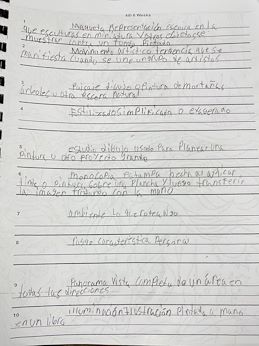 All 6 Weeks
1
Maqueta Representación escena en la
que esculturas en miniatura y otros objetos se
muestran contra un fondo Pintado
2
Movimiento artístico tendencia que se
manifiesta cuando se une un grupo de artistas
3
Paisaje dibujo o pintura de montañas
árboles u otra escena natural
4
Estilizado simplificado o exagerado
5
estudio dibujo usado para Planear una
pintura u otro proyecto grande
6
monocopia estampa hecha al aplicar
tinta o pintura sobre una Plancha y luego transferir
la imagen
7
ambiente lo que rodea
8
rasgo característica Personal
9
Panorama Vista completa de un área en
todas las direcciones
10
iluminación ilustración Pintada a mano
en un libro